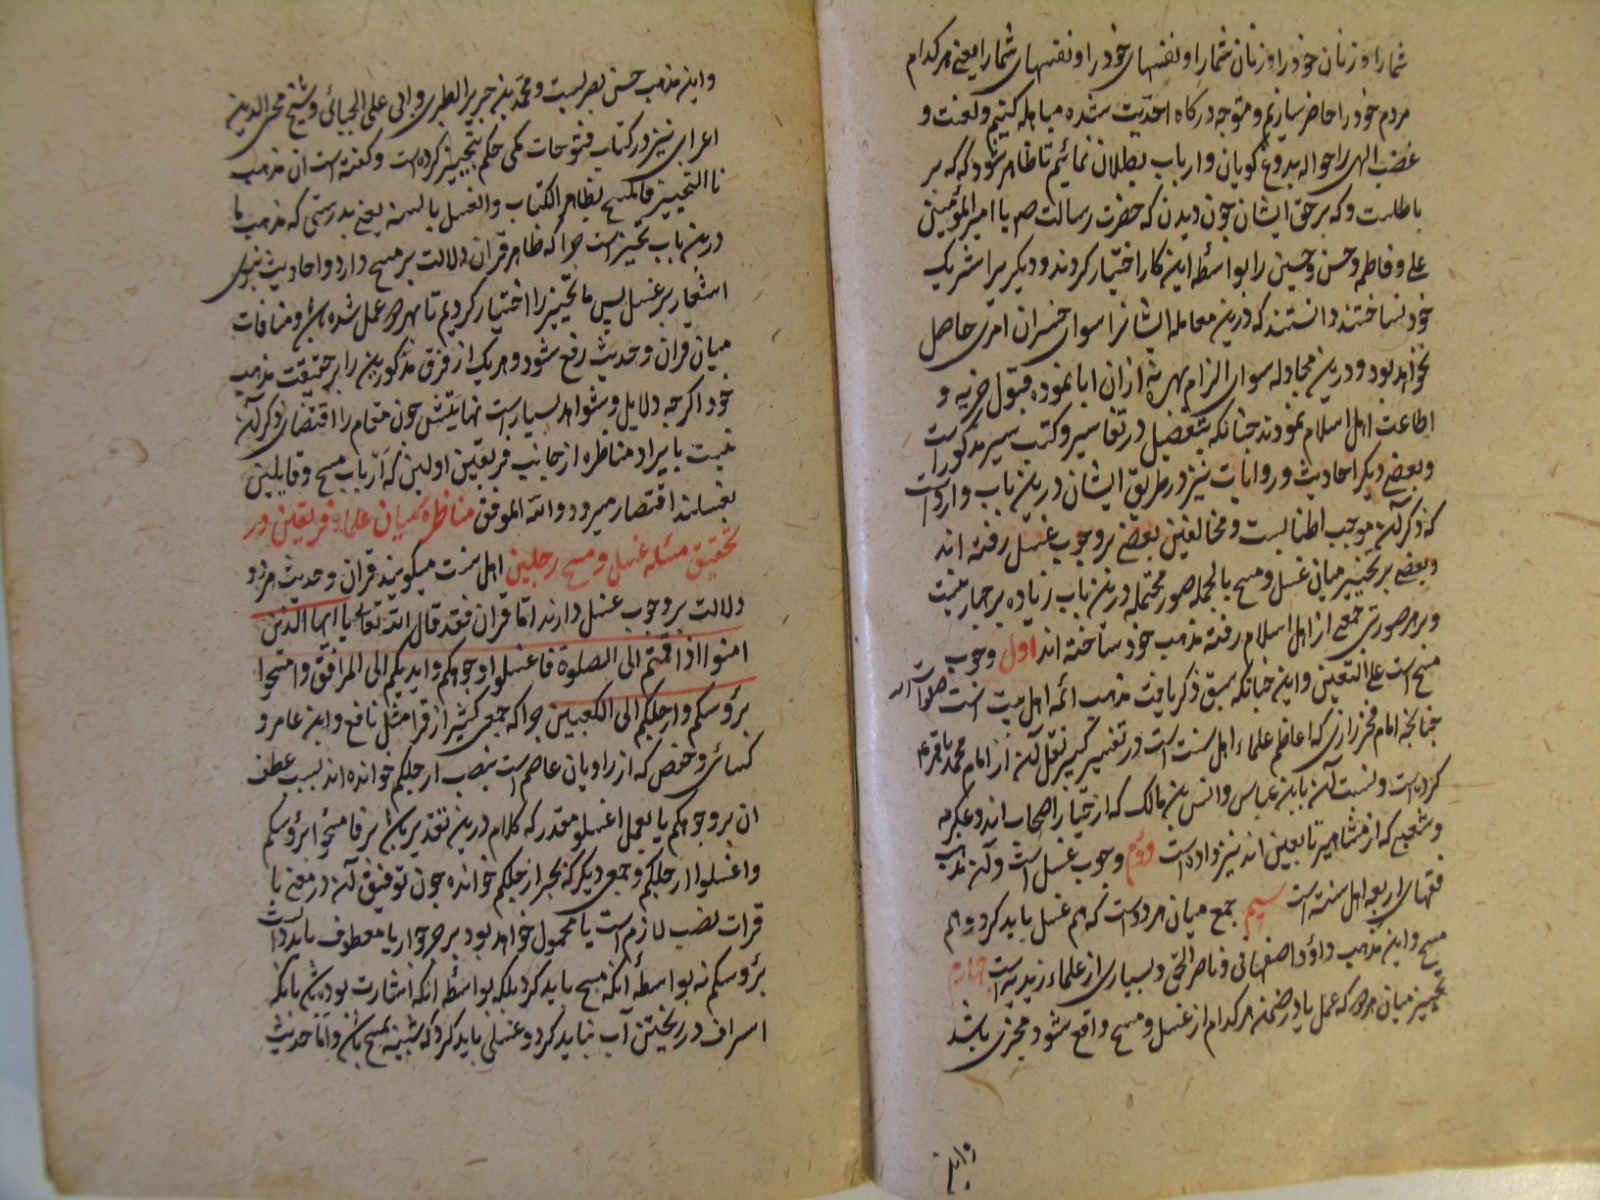 شما را و زنان خود را و زنان شما را و نفسهای خود را و نفسهای شما را یعنی هر کدام
مردم خود را حاضر سازیم و متوجه درکاه احدیت شده مباهله کنیم و لعنت و
غضب الهی را حواله بدروغ کویان و ارباب بطلان نمائیم تا ظاهر شود که که بر
باطلست و که بر حق ایشان چون دیدن که حضرت رسالت صم با امیر المؤمنین
علی و فاطمه و حسن و حسین را بواسطه این کار اختیار کردند و دیکر یرا شریک
خود نساختند دانستند که درین معامله ایشانرا سوای خسران امری حاصل
نخواهد بود و درین مجادله سوای الزام بهره نه از ان ابا نموده قبول جزیه و
اطاعت اهل اسلام نمودند چنانکه بتفصیل در تفاسیر و کتب سیر مذکور است
و بعضی دیکر احادیث و روایات نیز در طریق ایشان درین باب وارد است
که ذکر آن موجب اطنابست و مخالفین بعضی بر وجوب غسل رفته اند
و بعضی بر تخییر میان غسل و مسح بالجمله صور محتمله درین باب زیاده بر چهار نیست
و بر هر صورتی جمعی از اهل اسلام رفته مذهب خود ساخته اند اول وجوب
مسح است علی التعیین و این چنانکه سبق ذکر یافت مذهب ائمه اهل بیت است صلوات الله
چنانچه امام فخر رازی که اعاظم علماء اهل سنت است در تفسیر کبیر نقل آن از امام محمد باقر ع
کرده است و نسبت آن بابن عباس و انس بن مالک که از خیار اصحاب اند و عکرمه
و شعبی که از مشاهیر تابعین اند نیز داده است دوم وجوب غسل است و آن مذهب
فقهای اربعه اهل سنت است سیم جمع میان هر دو است که هم غسل باید کرد و هم
مسح و این مذهب داؤد اصفهانی و ناصر الحق و بسیاری از علماء زیدیه است چهارم
تخییر میان هر دو که عمل یا در ضمن هر کدام از غسل و مسح واقع شود مجزی باشد
و این
و این مذهب حسن بصریست و محمد بن جریر الطبری و ابی علی الجبائی و شیخ محی الدین
اعرابی نیز در کتاب فتوحات مکی حکم بتخییر کرده است و کفته است ان مذهب
نا التخییر فالمسح بظاهر الکتاب و الغسل بالسنه یعنی بدرستی که مذهب ما
درین باب تخییر است چرا که ظاهر قران دلالت بر مسح دارد و احادیث نبوی
اشعار بر غسل پس ما تخییر را اختیار کردیم تا بهر دو عمل شده باشد و منافات
میان قران و حدیث رفع شود و هر یک از فرق مذکورین را بر حقیقت مذهب
خود اکرچه دلایل و شواهد بسیار است نهایتش چون مقام را اقتضای ذکر آن
نیست بایراد مناظره از جانب فریقین اولین که ارباب مسح و قایلین
بغسلند اقتصار میرود و الله الموفق مناظره میان علماء فریقین در
تحقیق مسئله غسل و مسح رجلین اهل سنت میکویند قران و حدیث هر دو
دلالت بر وجوب غسل دارند اما قران فقد قال الله تعالی یا ایها الذین
امنوا اذا قمتم الی الصلوة فاغسلوا وجوهکم و ایدیکم الی المرافق و امسحوا
برؤسکم و ارجلکم الی الکعبین چرا که جمعی کثیر از قرا مثل نافع و ابن عامر و
کسائی و حفص که از راویان عاصم است بنصب ارجلکم خوانده اند بسبب عطف
ان بر وجوهکم یا بعمل اغسلوا مقدر که کلام درین تقدیر باشد برفامسحوا برؤسکم
و اغسلوا ارجلکم و جمعی دیکر که بجر ارجلکم خوانده چون توفیق آن در معنی با
قرات نصب لازم است یا محمول خواهد بود بر جر جوار یا معطوف باید دانست
برؤسکم نه بواسطه آنکه مسح باید کرد بلکه بواسطه انکه اشارت بوده باشد بانکه
اسراف در ریختن آب نباید کرد و غسلی باید کرد که شبیه بمسح باشد و اما حدیث